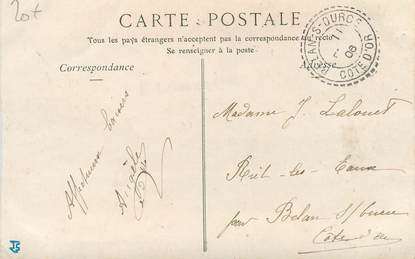 20+
CARTE POSTALE
Tous les pays étrangers n'acceptent pas la correspondance au recto
Se renseigner à la poste
Correspondance
Adresse
BELAN-S-OURCE
11
08
COTE D'OR
Affectueux baisers
Madame J. Lalouet
Riel-les-Eaux
par Belan s/Ource
Côte d'Or